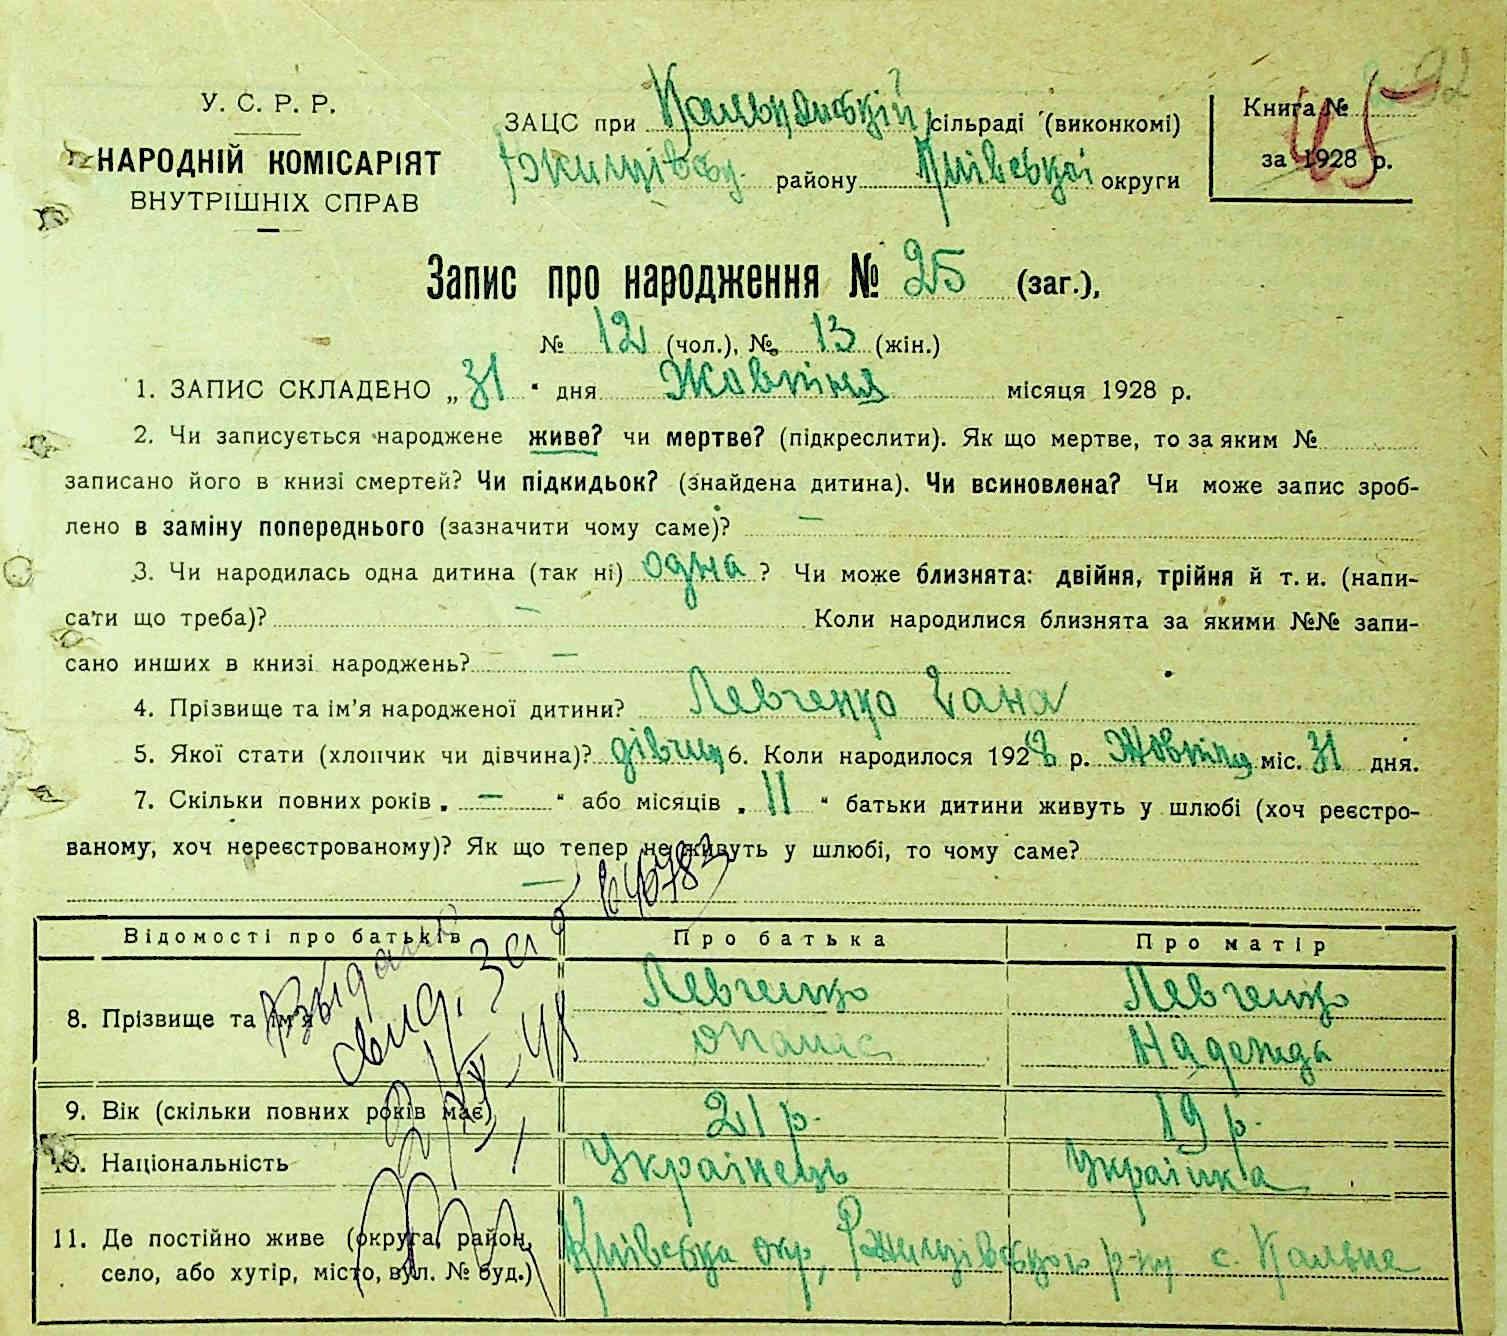 У. С. Р. Р.
НАРОДНІЙ КОМІСАРІЯТ
ВНУТРІШНІХ СПРАВ
ЗАЦС при сільраді (виконкомі)
району Київської округи
Книга №
за 1928 р.
Запис про народження № 25 (заг.),
№ 12 (чол.), № 13 (жін.)
1. ЗАПИС СКЛАДЕНО „31" дня Жовтня місяця 1928 р.
2. Чи записується народжене живе? чи мертве? (підкреслити). Як що мертве, то за яким №
записано його в книзі смертей? Чи підкидьок? (знайдена дитина). Чи всиновлена? Чи може запис зроб-
лено в заміну попереднього (зазначити чому саме)? —
3. Чи народилась одна дитина (так ні) одна ? Чи може близнята: двійня, трійня й т. и. (напи-
сати що треба)? — Коли народилися близнята за якими №№ запи-
сано инших в книзі народжень? —
4. Прізвище та ім'я народженої дитини? Левченко Гана
5. Якої стати (хлопчик чи дівчина)? 6. Коли народилося 1928 р. міс. 31 дня.
7. Скільки повних років „ — " або місяців „ 11 " батьки дитини живуть у шлюбі (хоч реєстро-
ваному, хоч нереєстрованому)? Як що тепер не живуть у шлюбі, то чому саме?
—
Відомості про батьків Про батька Про матір
8. Прізвище та ім'я Левченко Левченко
Опанас Надежда
9. Вік (скільки повних років має) 21 р. 19 р.
10. Національність Українець Українка
11. Де постійно живе (округа, район, Київська окр, Ржищівського р-ну с. Кальне
село, або хутір, місто, вул. № буд.)